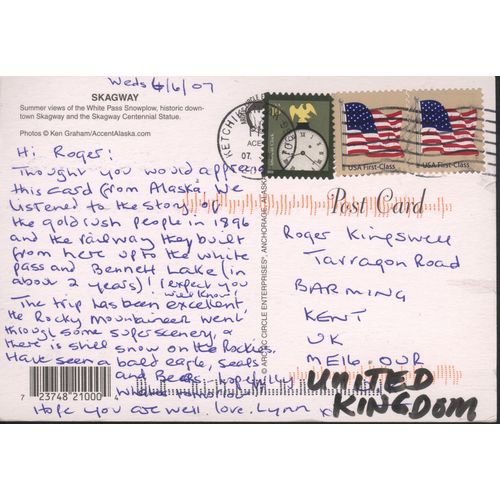 Weds 6/6/07
SKAGWAY
Summer views of the White Pass Snowplow, historic down-
town Skagway and the Skagway Centennial Statue.
Photos © Ken Graham/AccentAlaska.com
Hi Roger!
Thought you would appreciate
this card from Alaska. We
listened to the story of
the gold rush people in 1896
and the railway they built
from here up to the white
pass and Bennett Lake (in
about 2 years)! I expect you
will know!
The trip has been excellent
the Rocky Mountaineer went
through some super scenery, &
there is still snow on the Rockies.
Have seen a bald eagle, seals
and Bears. hopefully
whales tomorrow
Hope you are well. love. Lynn x
7 23748 21000
© ARCTIC CIRCLE ENTERPRISES® ANCHORAGE, ALASKA
KETCHI
07
American Clock
USA First-Class
USA First-Class
Post Card
Roger Kingswell
Tarragon Road
BARMING
KENT
UK
ME16 OUR
UNITED
KINGDOM